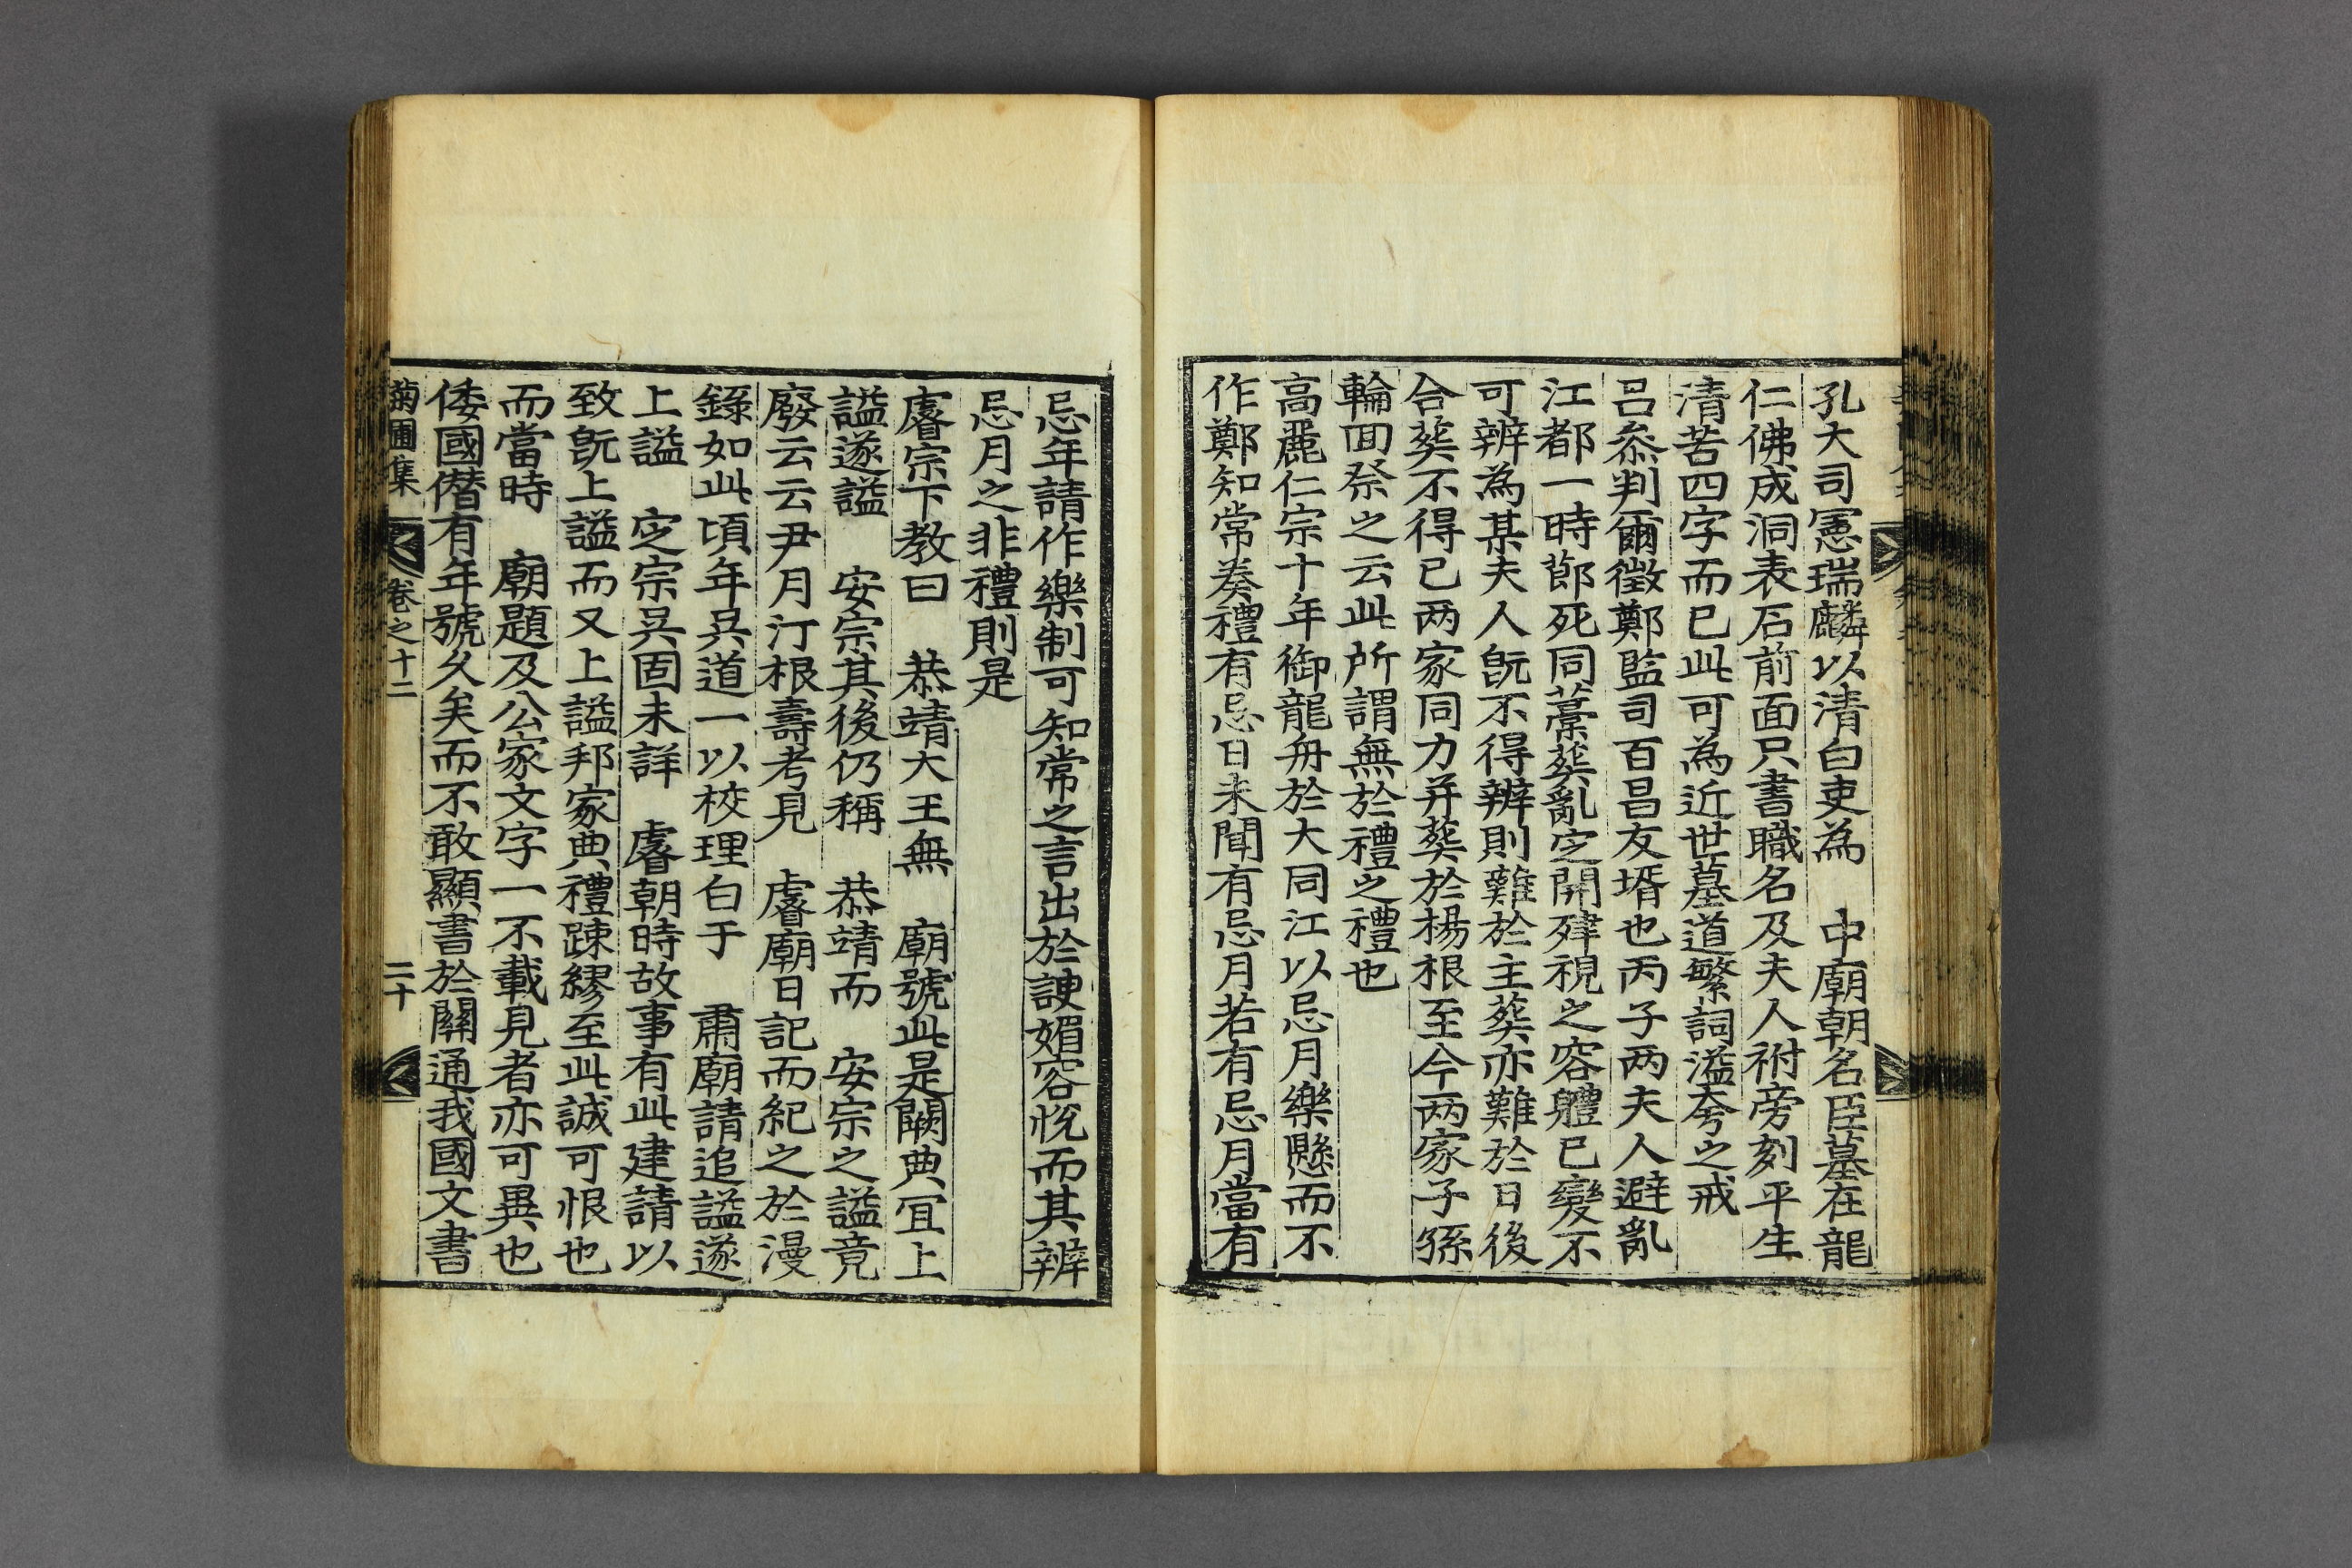 孔大司憲瑞麟以清白吏為　中廟朝名臣墓在龍
仁佛成洞表石前面只書職名及夫人祔旁刻平生
清苦四字而已此可為近世墓道繁詞溢夸之戒
呂叅判爾徵鄭監司百昌友壻也丙子两夫人避亂
江都一時節死同藁葬亂定開殯視之容軆已變不
可辨為某夫人旣不得辨則難於主葬亦難於日後
合葬不得已两家同力并葬於楊根至今两家子孫
輪回祭之云此所謂無於禮之禮也
高麗仁宗十年御龍舟於大同江以忌月樂懸而不
作鄭知常奏禮有忌日未聞有忌月若有忌月當有
忌年請作樂制可知常之言出於諛媚容悅而其辨
忌月之非禮則是
睿宗下教曰　恭靖大王無　廟號此是闕典冝上
謚遂謚　安宗其後仍稱　恭靖而　安宗之謚竟
廢云云尹月汀根壽考見　睿廟日記而紀之於漫
錄如此頃年吳道一以校理白于　肅廟請追謚遂
上謚　定宗吳固未詳　睿朝時故事有此建請以
致旣上謚而又上謚邦家典禮踈繆至此誠可恨也
而當時　廟題及公家文字一不載見者亦可異也
倭國僭有年號久矣而不敢顯書於關通我國文書
菊圃集　卷之十二　二十